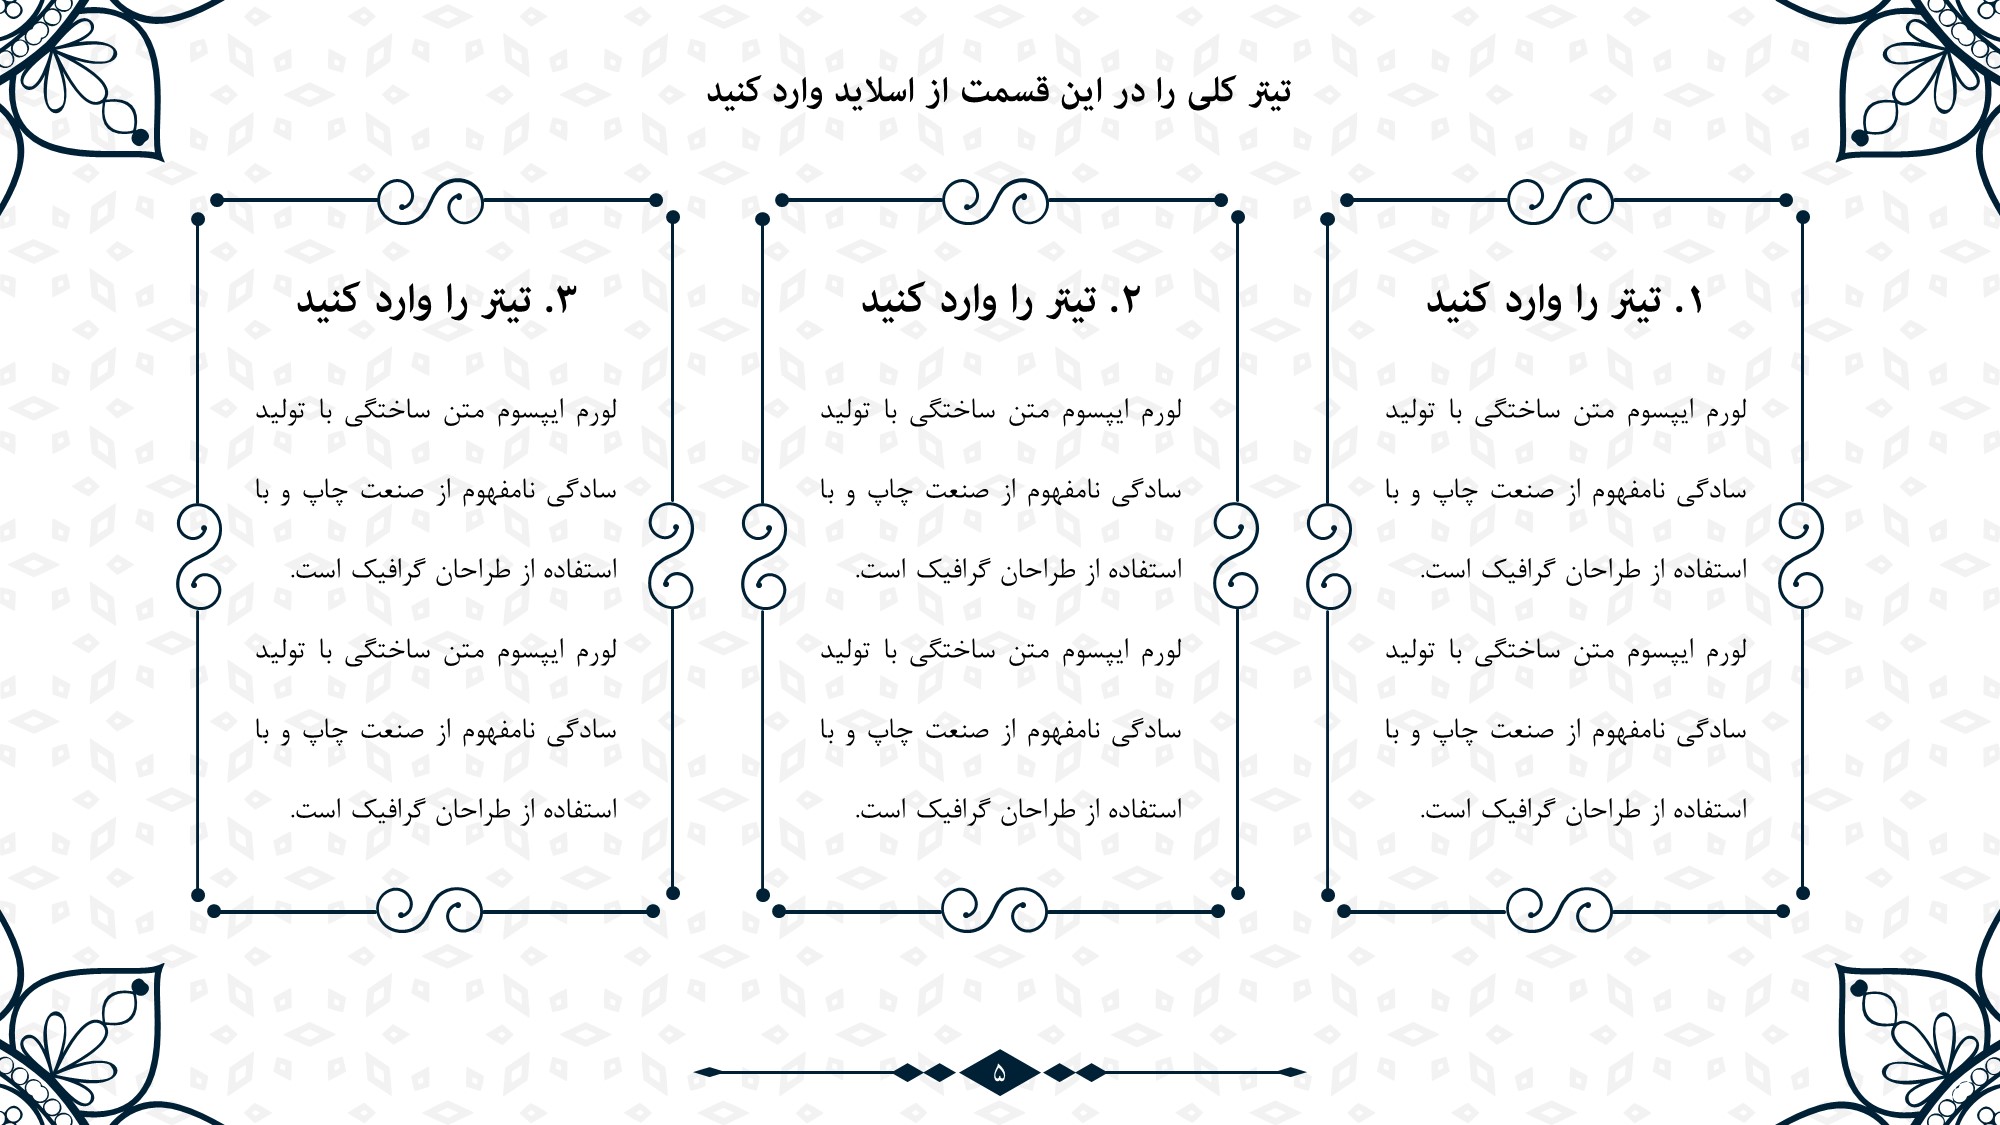 تیتر کلی را در این قسمت از اسلاید وارد کنید
۱. تیتر را وارد کنید
لورم ایپسوم متن ساختگی با تولید
سادگی نامفهوم از صنعت چاپ و با
استفاده از طراحان گرافیک است.
لورم ایپسوم متن ساختگی با تولید
سادگی نامفهوم از صنعت چاپ و با
استفاده از طراحان گرافیک است.
۲. تیتر را وارد کنید
لورم ایپسوم متن ساختگی با تولید
سادگی نامفهوم از صنعت چاپ و با
استفاده از طراحان گرافیک است.
لورم ایپسوم متن ساختگی با تولید
سادگی نامفهوم از صنعت چاپ و با
استفاده از طراحان گرافیک است.
۳. تیتر را وارد کنید
لورم ایپسوم متن ساختگی با تولید
سادگی نامفهوم از صنعت چاپ و با
استفاده از طراحان گرافیک است.
لورم ایپسوم متن ساختگی با تولید
سادگی نامفهوم از صنعت چاپ و با
استفاده از طراحان گرافیک است.
۵